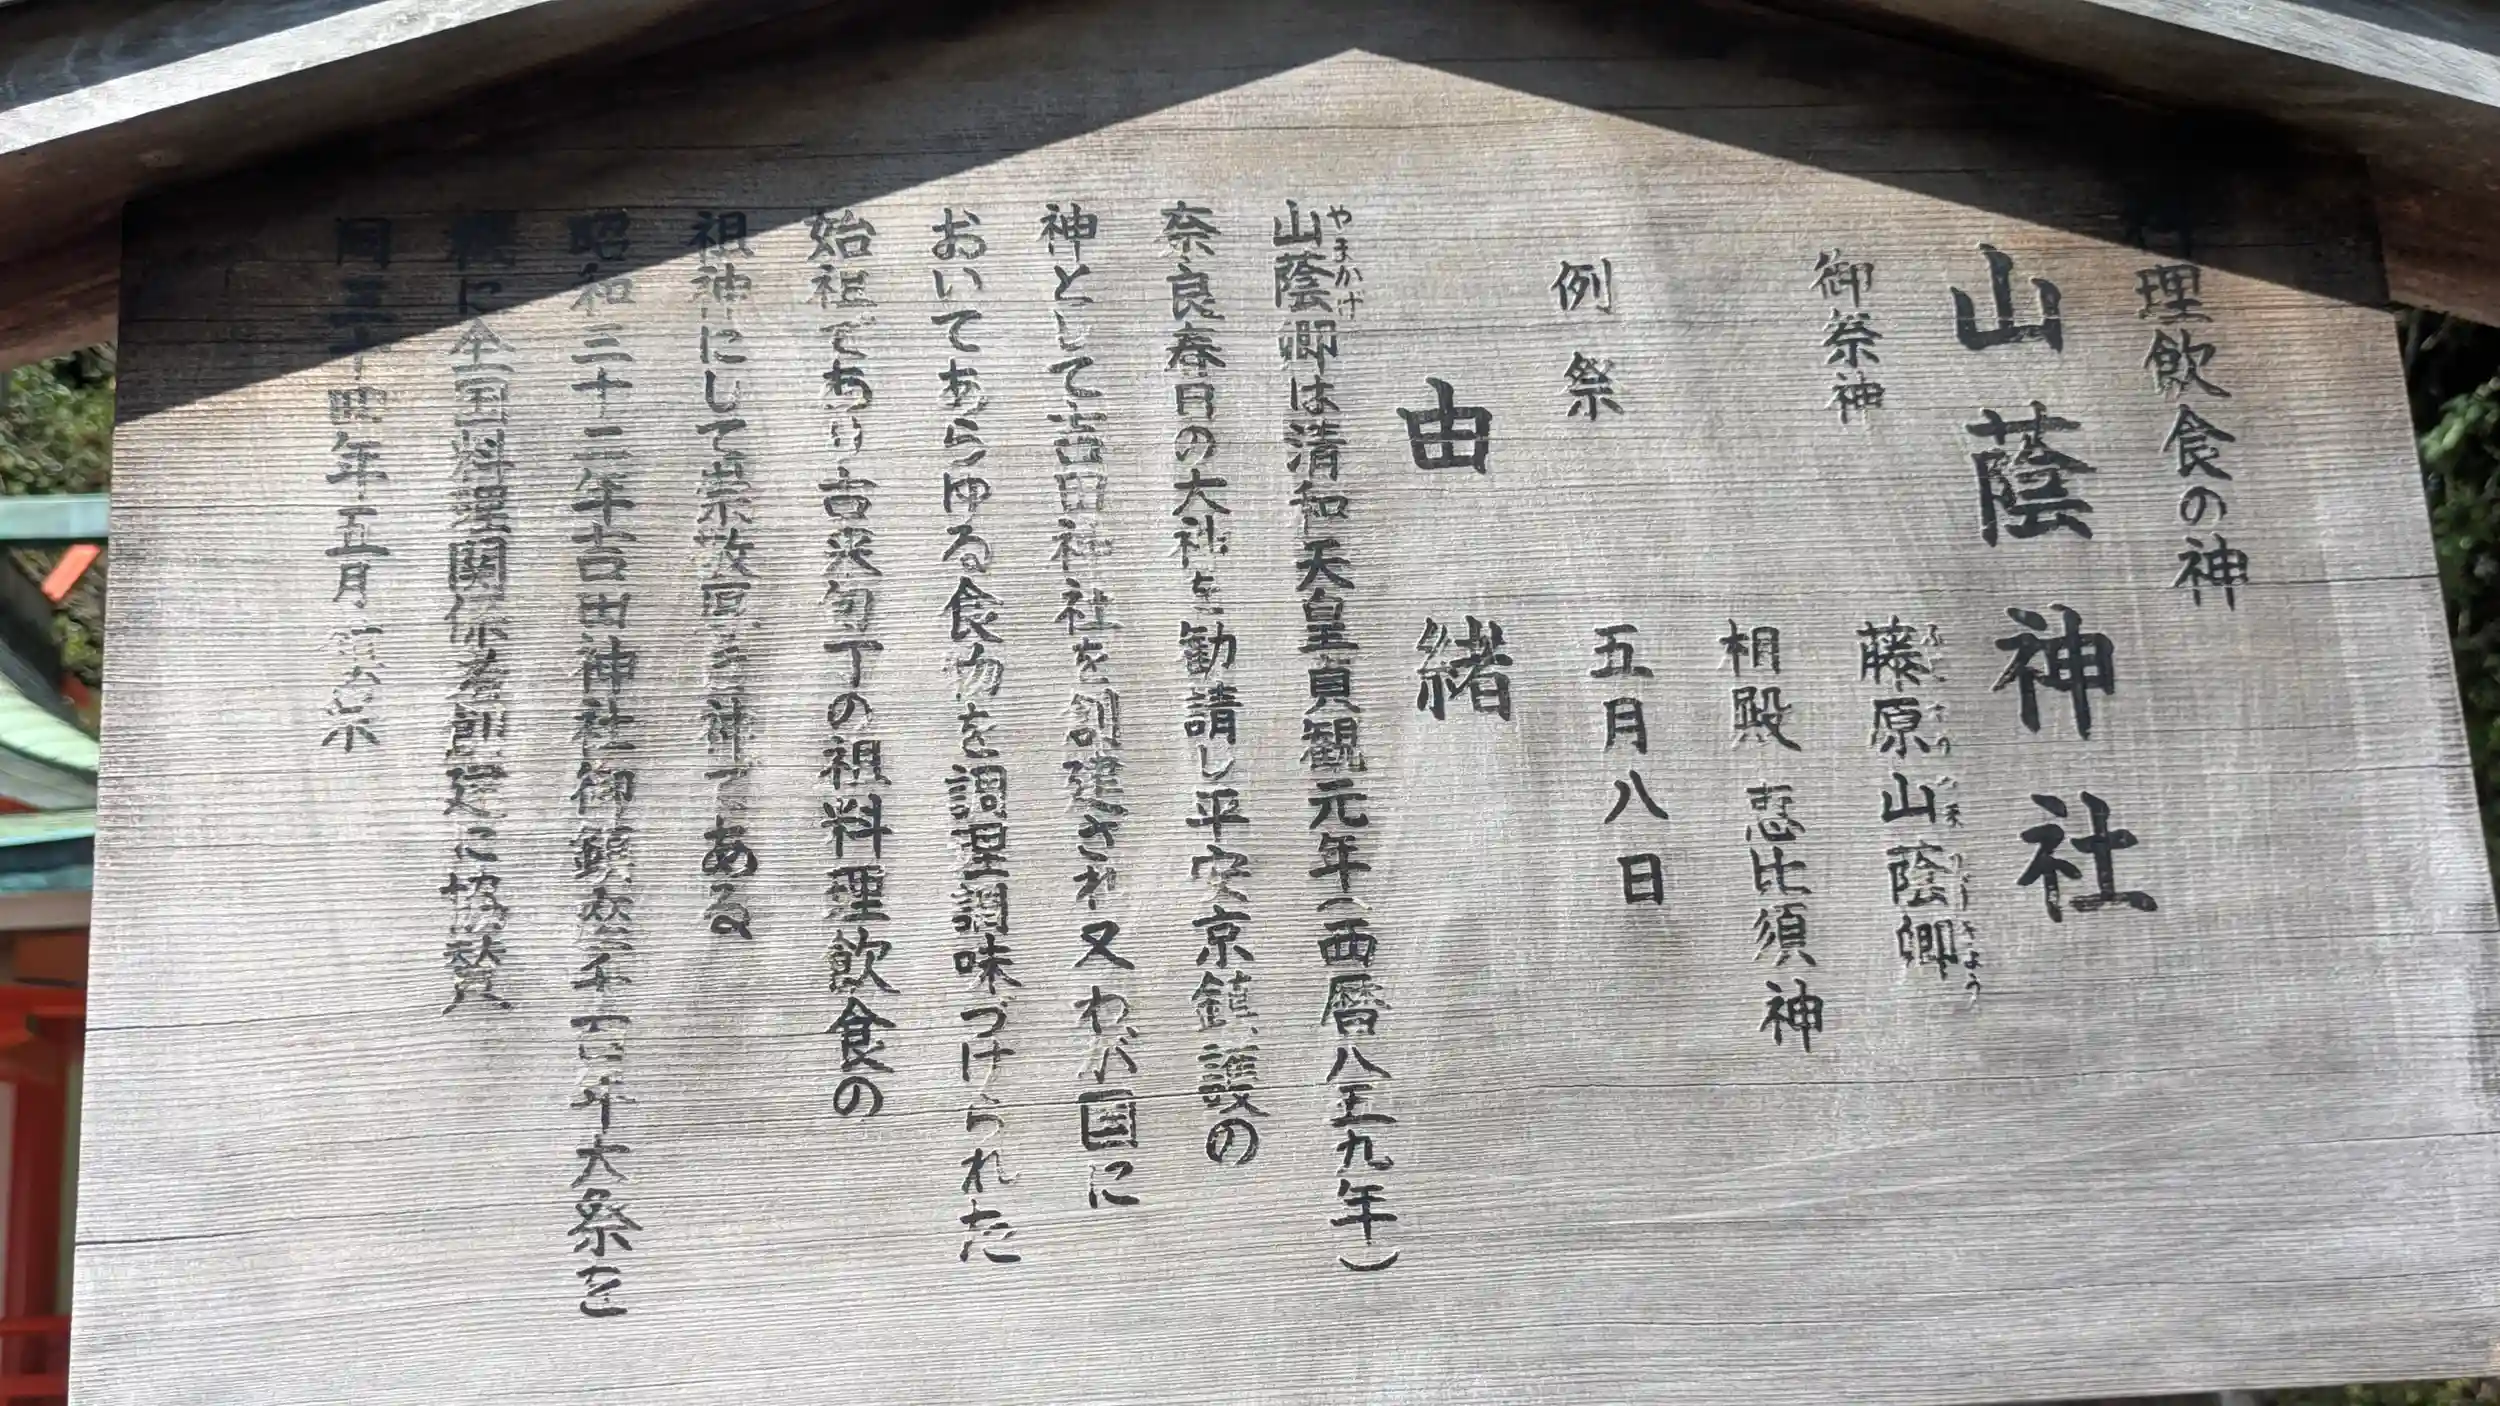 料理飲食の神
山蔭神社
御祭神
藤原山蔭卿
相殿 恵比須神
例祭
五月八日
由緒
やまかげ
山蔭卿は清和天皇貞観元年(西暦八五九年)
奈良春日の大神を勧請し平安京鎮護の
神として吉田神社を創建され又わが国に
おいてあらゆる食物を調理調味づけられた
始祖であり古来包丁の祖料理飲食の
祖神にして崇敬厚き神である
昭和三十二年吉田神社御鎮座千百年大祭を
機に全国料理関係者創建に協賛
同三十四年五月鎮座祭